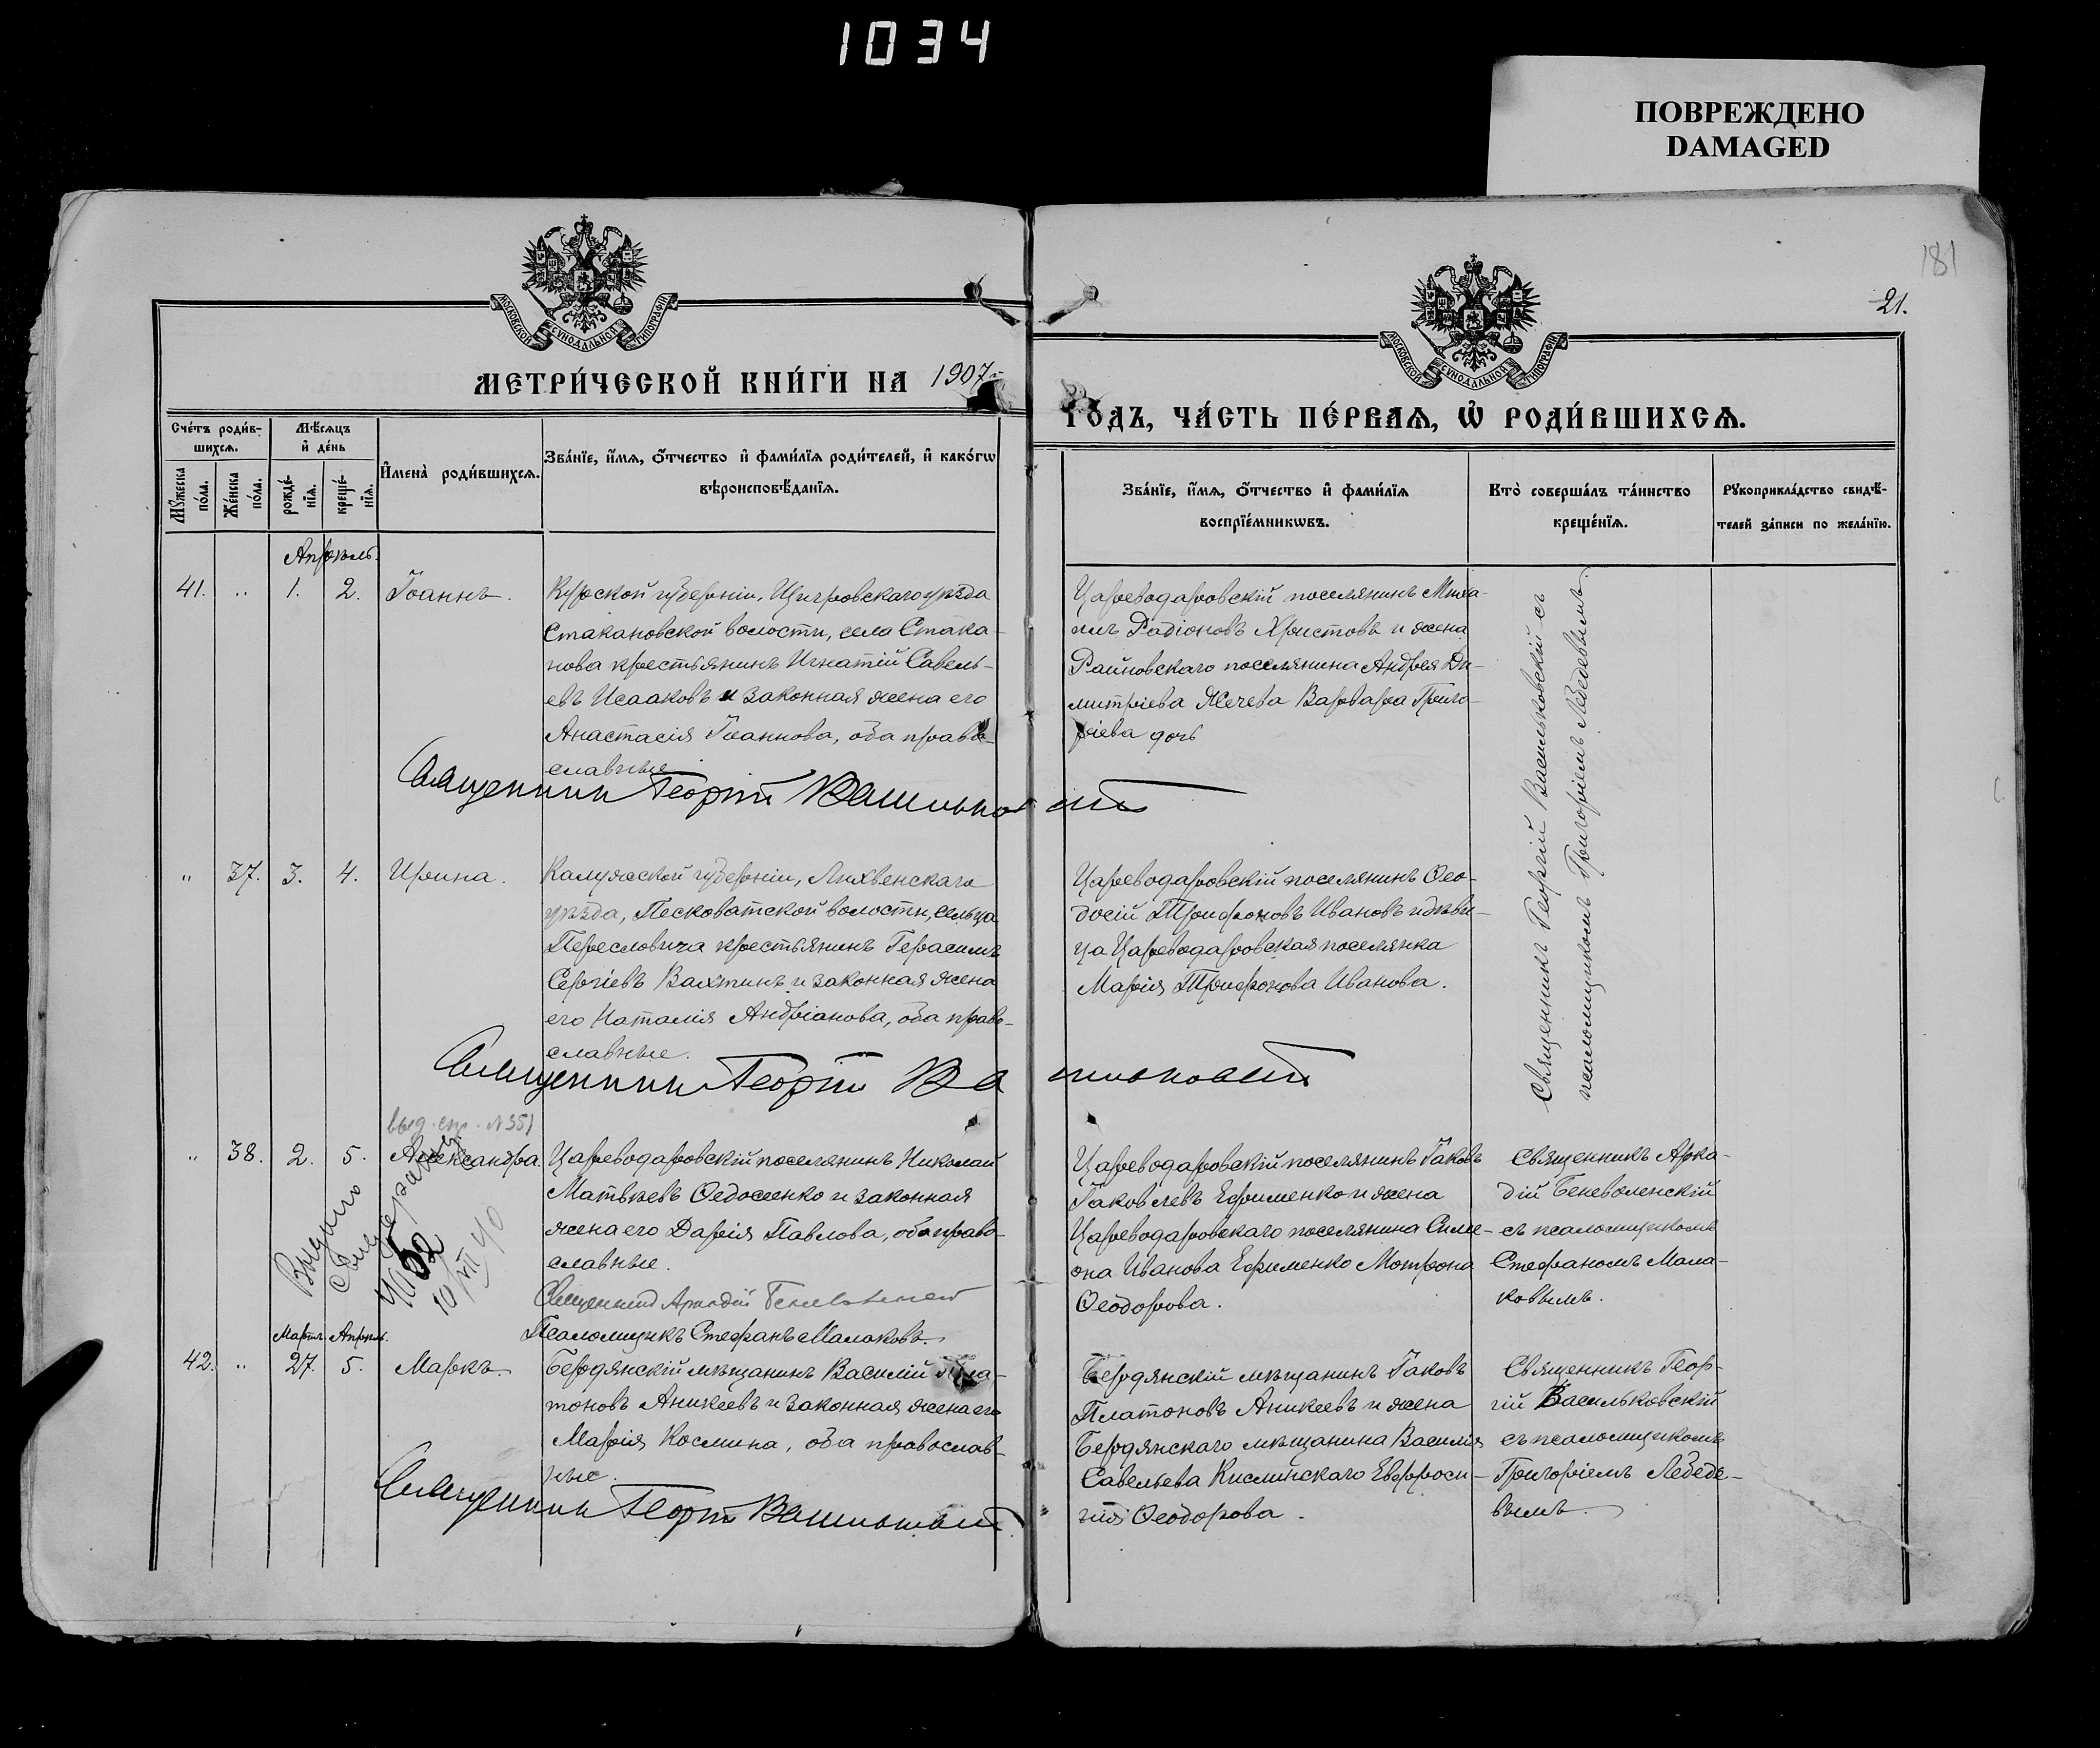 1034
ПОВРЕЖДЕНО
DAMAGED
181
21.
МОСКОВСКОЙ СѴНОДАЛЬНОЙ ТИПОГРАФІИ
МОСКОВСКОЙ СѴНОДАЛЬНОЙ ТИПОГРАФІИ
МЕТРИ́ЧЕСКОЙ КНИ́ГИ НА 1907
ГОДЪ, ЧА́СТЬ ПЕ́РВАѦ, Ѡ҆ РОДИ́ВШИХСѦ.
Сче́тъ роди́в-
шихсѧ.
Мꙋ́жеска по́ла.
Же́нска по́ла.
Мѣ́сѧцъ
и҆ де́нь
рожде́-
нїѧ.
креще́-
нїѧ.
И҆мена̀ роди́вшихсѧ.
Зва́нїе, и҆́мѧ, ѻ҆́тчество и҆ фами́лїѧ роди́телей, и҆ како́гѡ
вѣроисповѣ́данїѧ.
Зва́нїе, и҆́мѧ, ѻ҆́тчество и҆ фами́лїѧ
воспрїе́мникѡвъ.
Кто̀ соверша́лъ та́инство
креще́нїѧ.
Рꙋкоприкла́дство свидѣ́-
телей за́писи по жела́нїю.
Апрѣль.
41. „ 1. 2. Іоаннъ.
Курской губерніи, Щигровскаго уѣзда
Стакановской волости, села Стака-
нова крестьянинъ Игнатій Савель-
евъ Исааковъ и законная жена его
Анастасія Іоаннова, оба право-
славные
Цареводаровскій поселянинъ Миха-
илъ Радіоновъ Христовъ и жена
Райновскаго поселянина Андрея Ди-
митріева Жечева Варвара Григо-
ріева дочь
Священникъ Георгій Васильковскій съ
псаломщикомъ Григоріемъ Лебедевымъ.
Священникъ Георгій Васильковскій
„ 37. 3. 4. Ирина.
Калужской губерніи, Лихвенскаго
уѣзда, Песковатской волости, сельца
Пересловича крестьянинъ Герасимъ
Сергіевъ Вахтинъ и законная жена
его Наталія Андріанова, оба право-
славные.
Цареводаровскій поселянинъ Ѳео-
досій Трифоновъ Ивановъ и дѣви-
ца Цареводаровская поселянка
Марія Трифонова Иванова.
Священникъ Георгій Васильковскій
выд. спр. N 351
„ 38. 2. 5. Александра.
Цареводаровскій поселянинъ Николай
Матвѣевъ Ѳедосенко и законная
жена его Дарія Павлова, оба право-
славные.
Священникъ Аркадій Беневоленскій
Псаломщикъ Стефанъ Малаковъ.
Цареводаровскій поселянинъ Іаковъ
Іаковлевъ Ефименко и жена
Цареводаровскаго поселянина Симе-
она Иванова Ефименко Мотрона
Ѳеодорова.
Священникъ Арка-
дій Беневоленскій
съ псаломщикомъ
Стефаномъ Мала-
ковымъ.
Мартъ. Апрѣль.
42. „ 27. 5. Маркъ.
Бердянскій мѣщанинъ Василій Пла-
тоновъ Аникеевъ и законная жена его
Марія Космина, оба православ-
ные.
Бердянскій мѣщанинъ Іаковъ
Платоновъ Аникеевъ и жена
Бердянскаго мѣщанина Василія
Савельева Кислинскаго Евфроси-
нія Ѳеодорова.
Священникъ Геор-
гій Васильковскій
съ псаломщикомъ
Григоріемъ Лебеде-
вымъ.
Священникъ Георгій Васильковскій